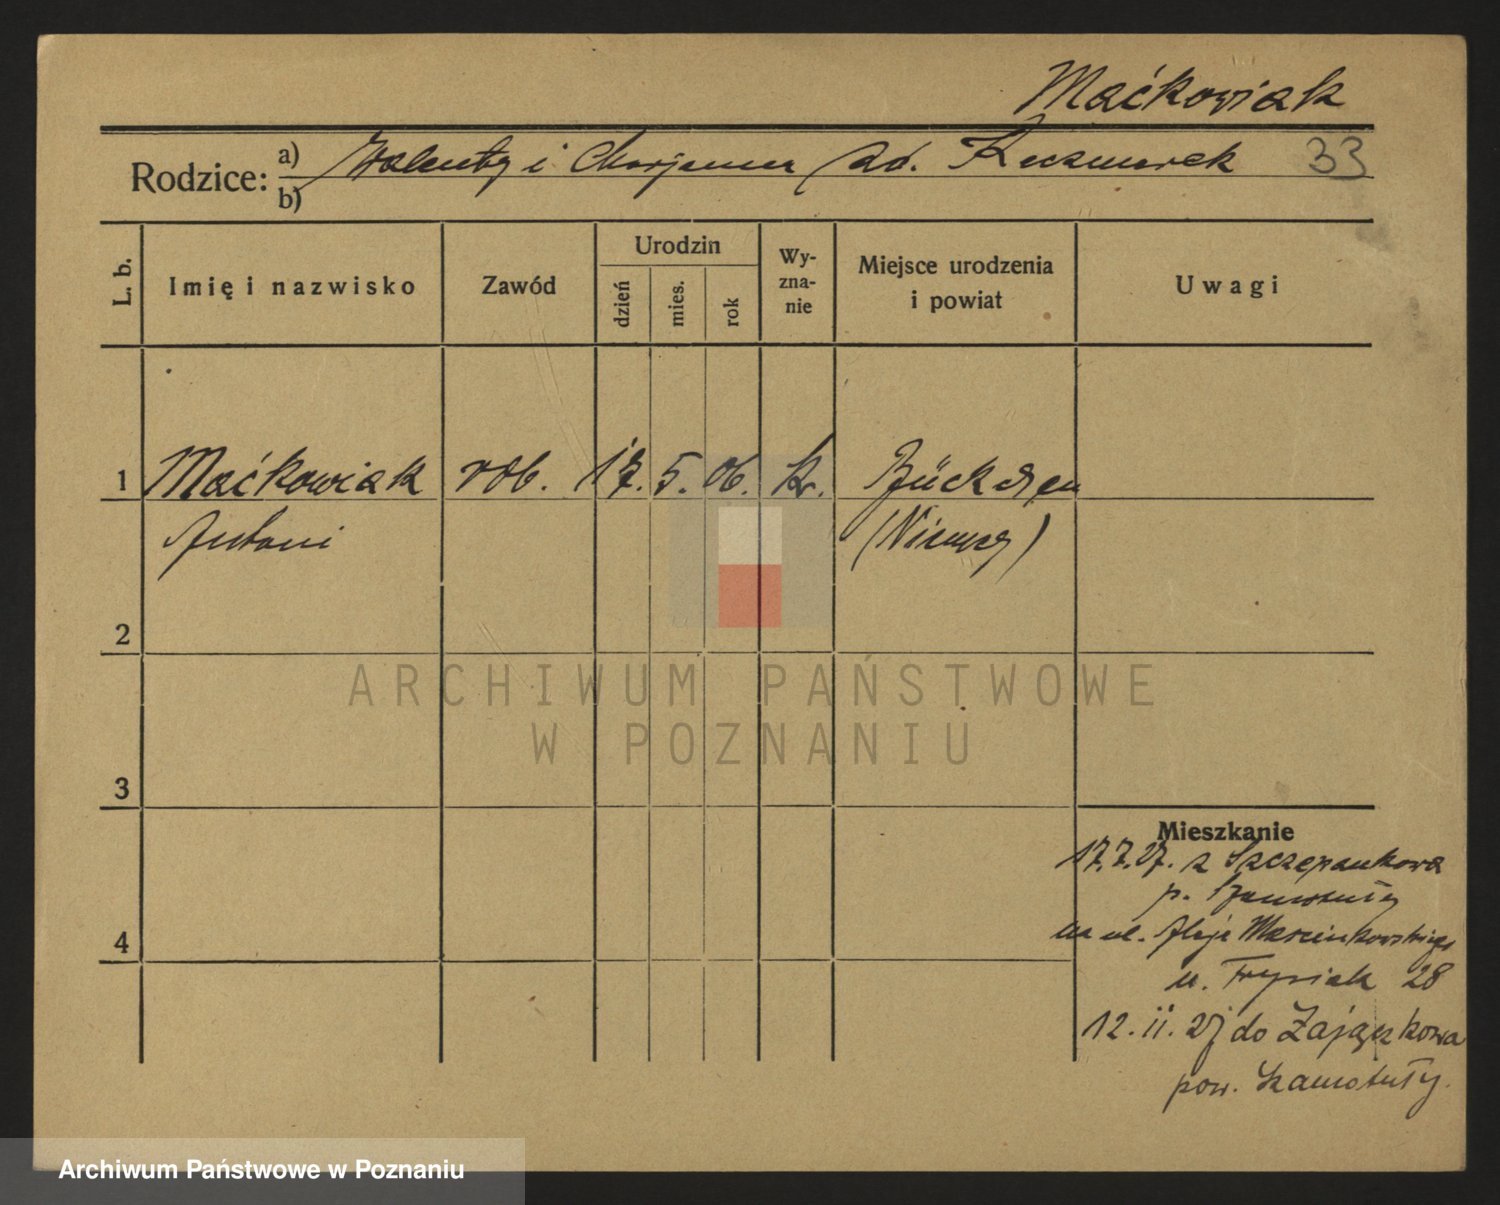 Maćkowiak
Rodzice: a) Walenty i Marjanna zd. Kaczmarek 33
b)
L. b. Imię i nazwisko Zawód Urodzin dzień mies. rok Wy-zna-nie Miejsce urodzenia i powiat Uwagi
1 Maćkowiak rob. 17. 5. 06. kr.
Antoni (Niemcy)
2
3
4
Mieszkanie
17.7.27. z Szczepankowa
p. Szamotuły
na ul. Aleje Marcinkowskiego
u. 28
12.ii.27 do Zajączkowa
pow. Szamotuły.
ARCHIWUM PAŃSTWOWE
W POZNANIU
Archiwum Państwowe w Poznaniu